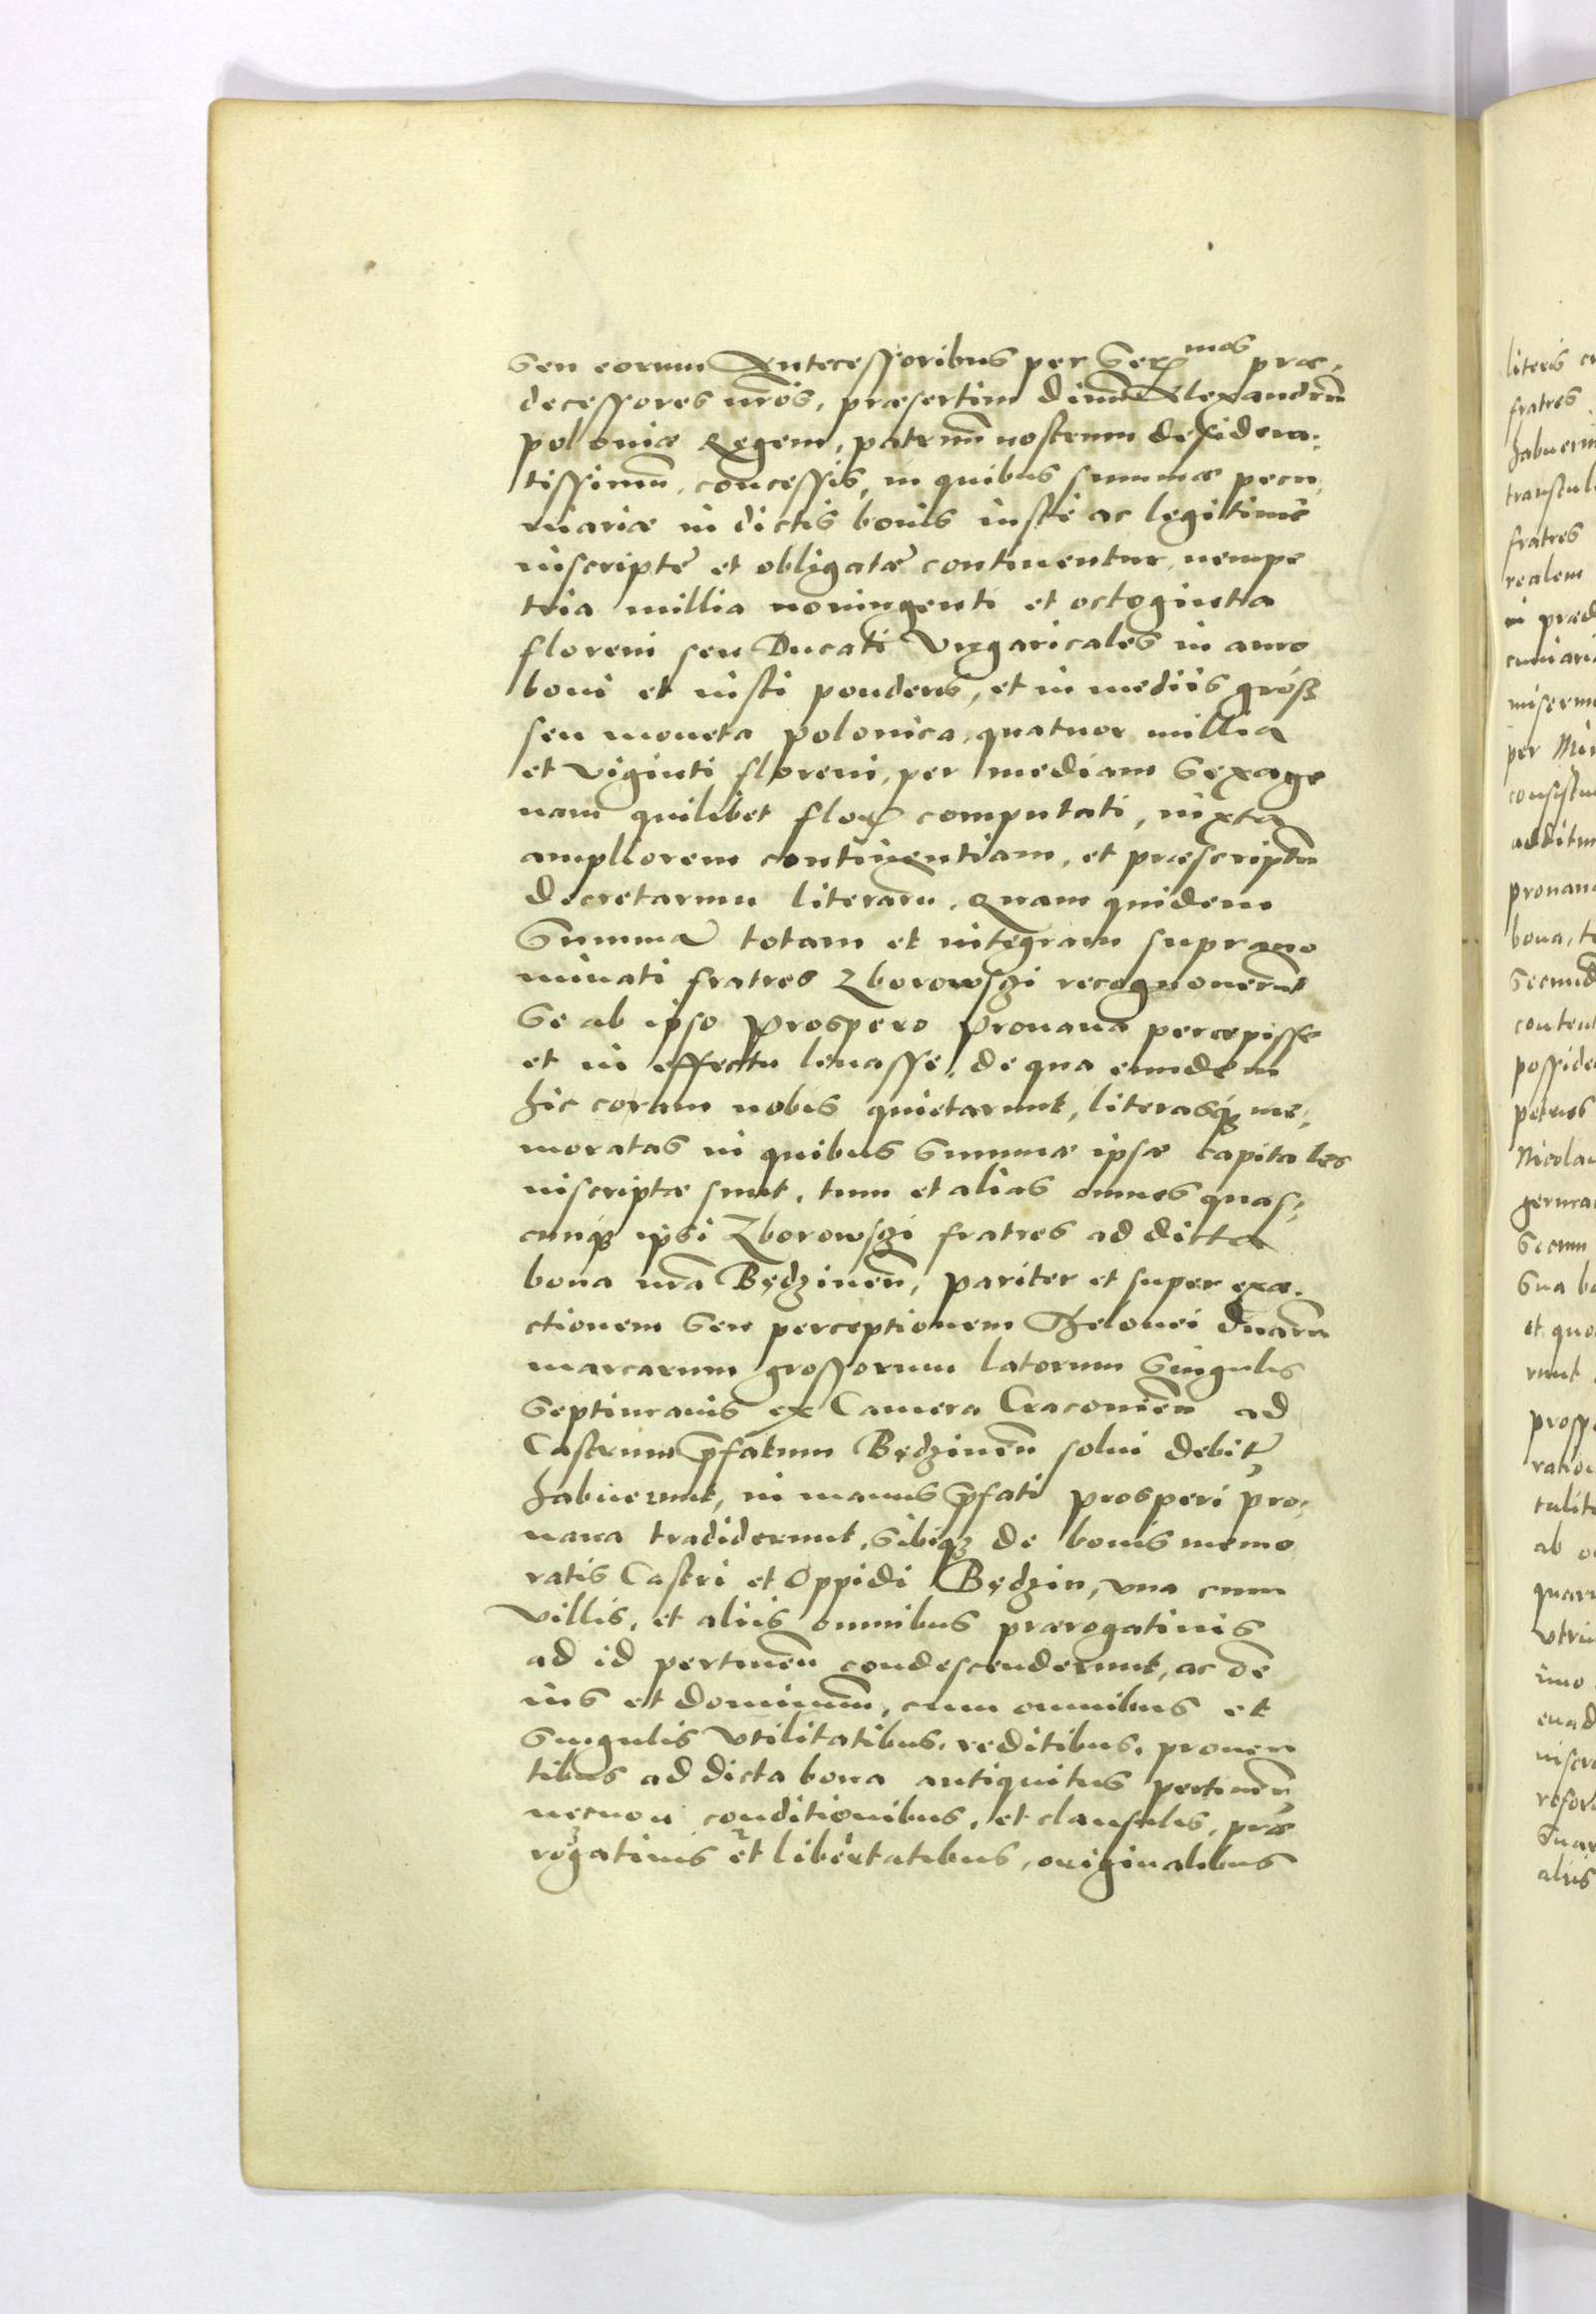 seu eorum Antecessoribus per Ser^mos præ-
decessores nr̃os, præsertim diuũ Alexandrũ
poloniæ Regem, patruũ nostrum desidera-
tissimũ, concessis, in quibus summæ pecu-
niariæ in dictis bonis iustè ac legitimè
inscriptę et obligatæ continentur, nempe
tria millia noningenti et octoginta
floreni seu Ducati Vngaricales in auro
boni et iusti ponderis, et in mediis gross
seu moneta polonica, quatuor millia
et viginti floreni, per mediam sexage
nam quilibet flor computati, iuxta
ampliorem continentiam, et præscriptũ
decretarum literarũ. Quam quidem
Summã totam et integram suprano
minati fratres Zborowsgi recognouerũt
se ab ipso Prospero Prouana percepisse
et in effectu leuasse, de qua eundem
hic coram nobis quietarunt, literasq₃ me-
moratas in quibus summæ ipsæ capitales
inscriptæ sunt, tum et alias omnes quas-
cunq₃ ipsi Zborowsgi fratres ad dicta
bona nr̃a Będzineñ, pariter et super exa-
ctionem seu perceptionem Thelonei duarũ
marcarum grossorum latorum singulis
septimanis ex Camera Cracouieñ ad
Castrum p̃fatum Będzineñ solui debit
habuerunt, in manus p̃fati prosperi pro-
uana tradiderunt, sibiq₃ de bonis memo
ratis Castri et Oppidi Będzin, vna cum
villis, et aliis omnibus prærogatiuis
ad id pertineñ condescenderunt, ac om̃e
ius et dominiũ, cum omnibus et
singulis vtilitatibus, reditibus, prouen
tibus ad dicta bona antiquitus pertineñ
necnon conditionibus, et clausulis, præ
rogatiuis et libertatibus, originalibus
literis
fratres
fratres
realem
in
per
bona,
petrus
et
ab
aliis